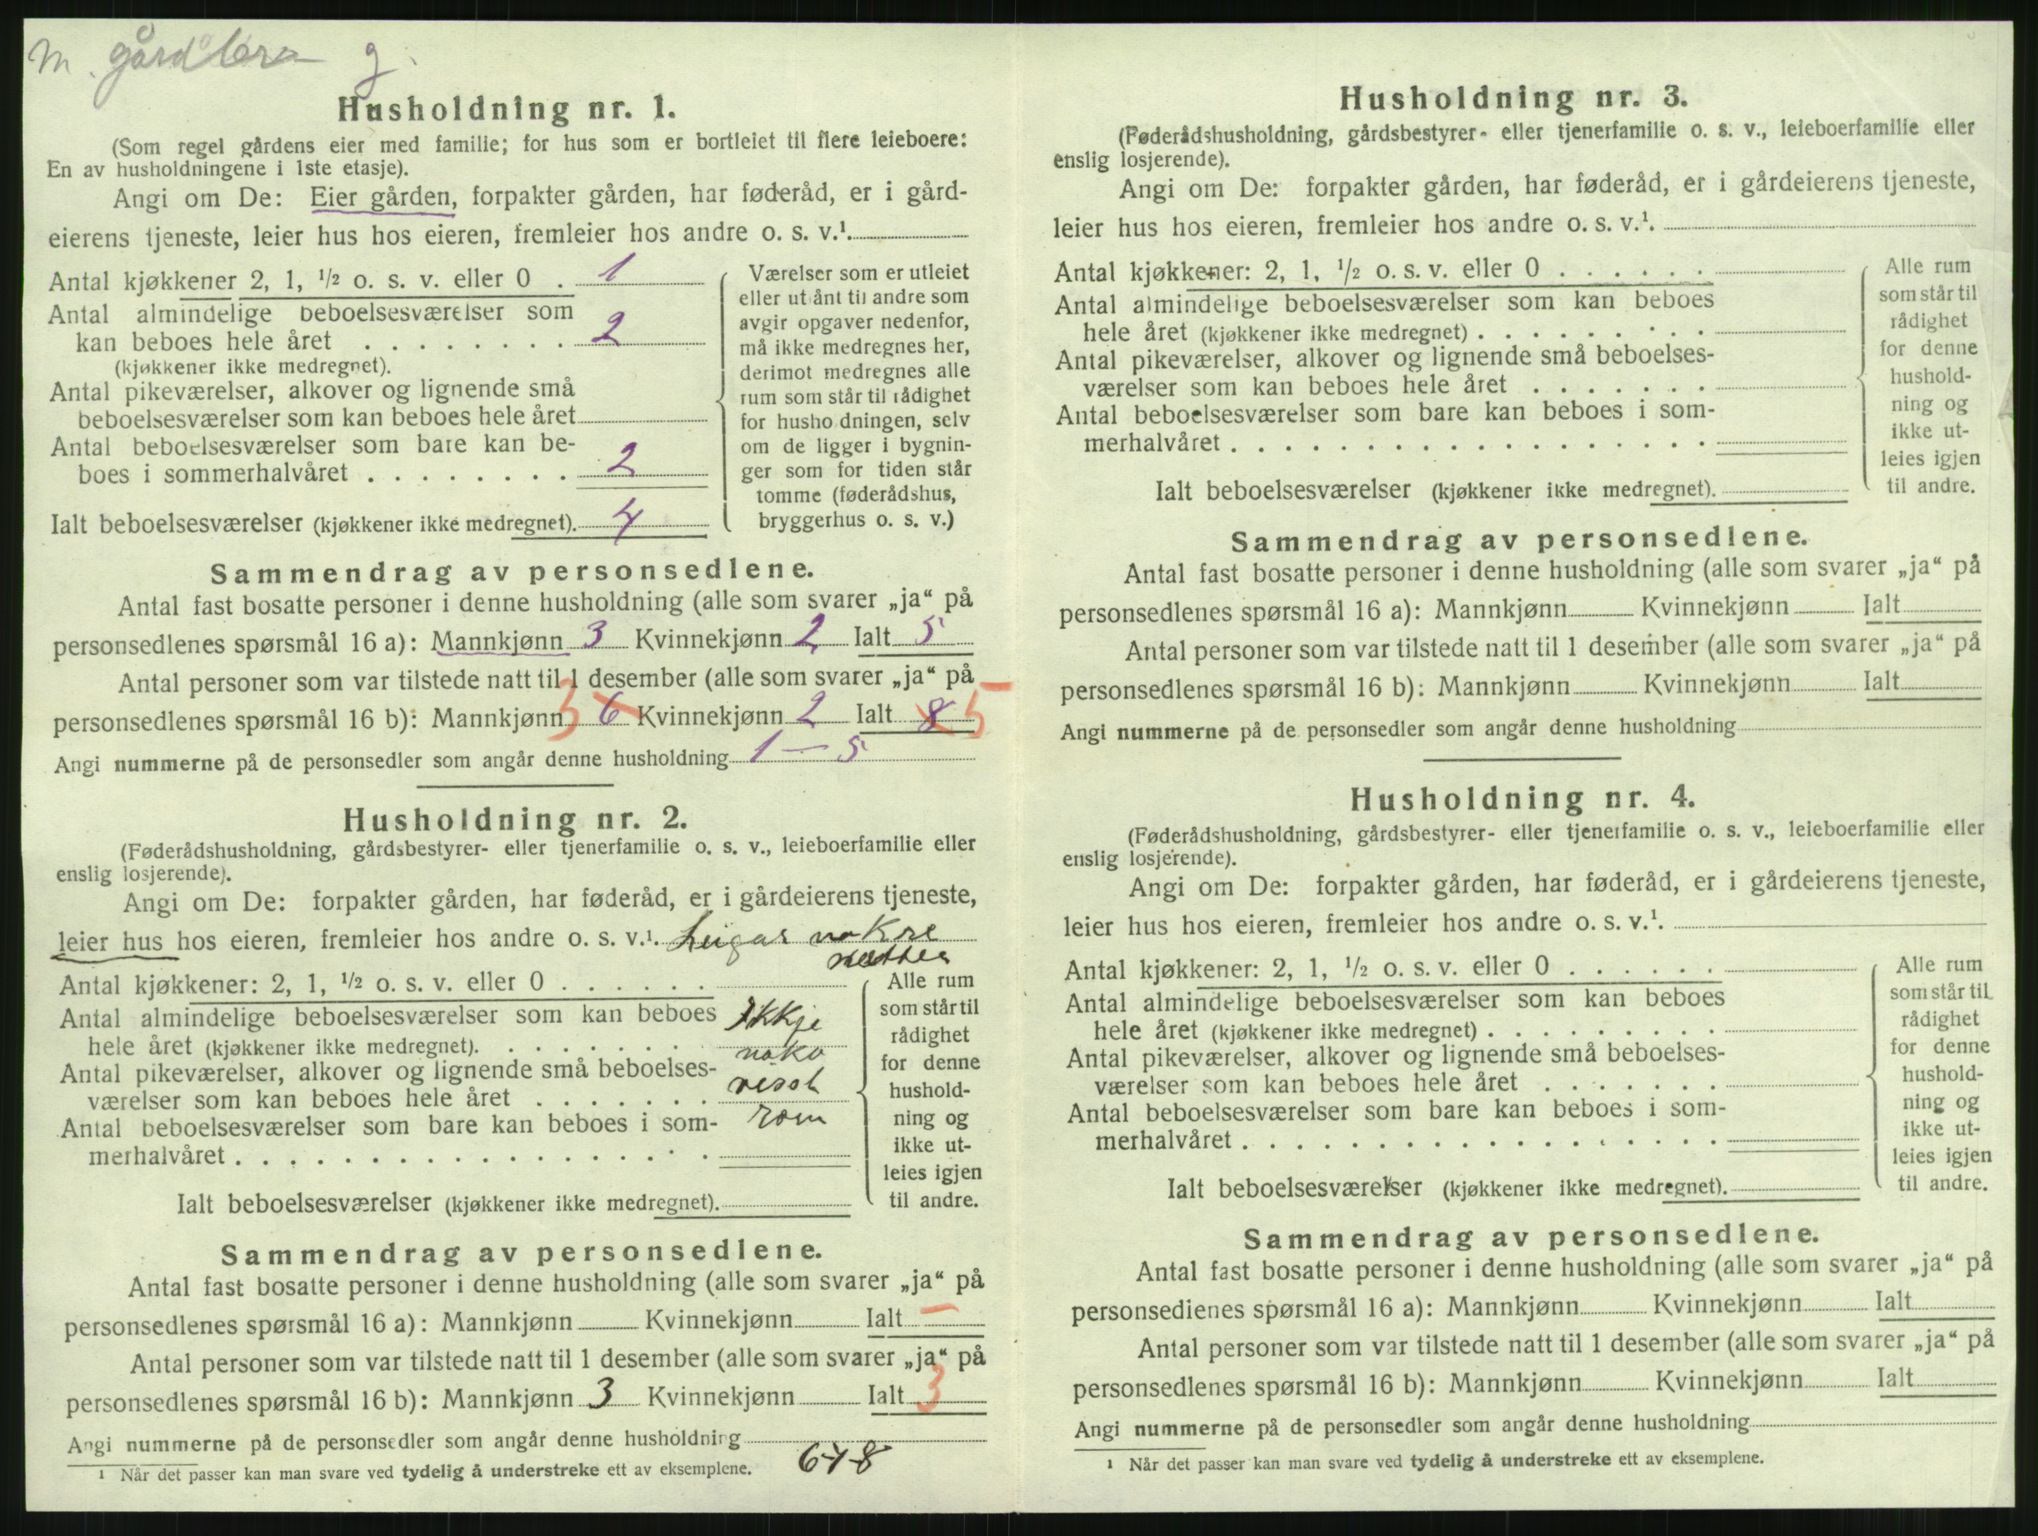 M. gårdbru g.
Husholdning nr. 1.
(Som regel gårdens eier med familie; for hus som er bortleiet til flere leieboere:
En av husholdningene i 1ste etasje).
Angi om De: Eier gården, forpakter gården, har føderåd, er i gård-
eierens tjeneste, leier hus hos eieren, fremleier hos andre o. s. v.¹.
Antal kjøkkener 2, 1, ½ o. s. v. eller 0 . 1
Antal almindelige beboelsesværelser som
kan beboes hele året . . . . . . . . 2
(kjøkkener ikke medregnet).
Antal pikeværelser, alkover og lignende små
beboelsesværelser som kan beboes hele året
Antal beboelsesværelser som bare kan be-
boes i sommerhalvåret . . . . . . . . 2
Ialt beboelsesværelser (kjøkkener ikke medregnet). 4
Værelser som er utleiet
eller ut ånt til andre som
avgir opgaver nedenfor,
må ikke medregnes her,
derimot medregnes alle
rum som står til rådighet
for husho dningen, selv
om de ligger i bygnin-
ger som for tiden står
tomme (føderådshus,
bryggerhus o. s. v.)
Sammendrag av personsedlene.
Antal fast bosatte personer i denne husholdning (alle som svarer „ja“ på
personsedlenes spørsmål 16 a): Mannkjønn 3 Kvinnekjønn 2 Ialt 5
Antal personer som var tilstede natt til 1 desember (alle som svarer „ja“ på
personsedlenes spørsmål 16 b): Mannkjønn 3 6 Kvinnekjønn 2 Ialt 8 5
Angi nummerne på de personsedler som angår denne husholdning 1 — 5
Husholdning nr. 2.
(Føderådshusholdning, gårdsbestyrer- eller tjenerfamilie o. s. v., leieboerfamilie eller
enslig losjerende).
Angi om De: forpakter gården, har føderåd, er i gårdeierens tjeneste,
leier hus hos eieren, fremleier hos andre o. s. v.¹. Ligar nokre
nætter
Antal kjøkkener: 2, 1, ½ o. s. v. eller 0 . . . . . .
Antal almindelige beboelsesværelser som kan beboes Ikkje
hele året (kjøkkener ikke medregnet). . . . . . . . . noko
Antal pikeværelser, alkover og lignende små beboelses- visst
værelser som kan beboes hele året . . . . . . .
Antal beboelsesværelser som bare kan beboes i som- rom
merhalvåret . . . . . . . . . . . . . . . . . .
Ialt beboelsesværelser (kjøkkener ikke medregnet).
Alle rum
som står til
rådighet
for denne
hushold-
ning og
ikke ut-
leies igjen
til andre.
Sammendrag av personsedlene.
Antal fast bosatte personer i denne husholdning (alle som svarer „ja“ på
personsedlenes spørsmål 16 a): Mannkjønn Kvinnekjønn Ialt —
Antal personer som var tilstede natt til 1 desember (alle som svarer „ja“ på
personsedlenes spørsmål 16 b): Mannkjønn 3 Kvinnekjønn Ialt 3
Angi nummerne på de personsedler som angår denne husholdning 6-7-8
¹ Når det passer kan man svare ved tydelig å understreke ett av eksemplene.
Husholdning nr. 3.
(Føderådshusholdning, gårdsbestyrer- eller tjenerfamilie o. s. v., leieboerfamilie eller
enslig losjerende).
Angi om De: forpakter gården, har føderåd, er i gårdeierens tjeneste,
leier hus hos eieren, fremleier hos andre o. s. v.¹.
Antal kjøkkener: 2, 1, ½ o. s. v. eller 0 . . . . . .
Antal almindelige beboelsesværelser som kan beboes
hele året (kjøkkener ikke medregnet) . . . . . . . . .
Antal pikeværelser, alkover og lignende små beboelses-
værelser som kan beboes hele året . . . . . . .
Antal beboelsesværelser som bare kan beboes i som-
merhalvåret . . . . . . . . . . . . . . . . . .
Ialt beboelsesværelser (kjøkkener ikke medregnet).
Alle rum
som står til
rådighet
for denne
hushold-
ning og
ikke ut-
leies igjen
til andre.
Sammendrag av personsedlene.
Antal fast bosatte personer i denne husholdning (alle som svarer „ja“ på
personsedlenes spørsmål 16 a): Mannkjønn Kvinnekjønn Ialt
Antal personer som var tilstede natt til 1 desember (alle som svarer „ja“ på
personsedlenes spørsmål 16 b): Mannkjønn Kvinnekjønn Ialt
Angi nummerne på de personsedler som angår denne husholdning
Husholdning nr. 4.
(Føderådshusholdning, gårdsbestyrer- eller tjenerfamilie o. s. v., leieboerfamilie eller
enslig losjerende).
Angi om De: forpakter gården, har føderåd, er i gårdeierens tjeneste,
leier hus hos eieren, fremleier hos andre o. s. v.¹.
Antal kjøkkener: 2, 1, ½ o. s. v. eller 0 . . . . . .
Antal almindelige beboelsesværelser som kan beboes
hele året (kjøkkener ikke medregnet) . . . . . . . . .
Antal pikeværelser, alkover og lignende små beboelses-
værelser som kan beboes hele året . . . . . . .
Antal beboelsesværelser som bare kan beboes i som-
merhalvåret . . . . . . . . . . . . . . . . . .
Ialt beboelsesværelser (kjøkkener ikke medregnet).
Alle rum
som står til
rådighet
for denne
hushold-
ning og
ikke ut-
leies igjen
til andre.
Sammendrag av personsedlene.
Antal fast bosatte personer i denne husholdning (alle som svarer „ja“ på
personsedlenes spørsmål 16 a): Mannkjønn Kvinnekjønn Ialt
Antal personer som var tilstede natt til 1 desember (alle som svarer „ja“ på
personsedlenes spørsmål 16 b): Mannkjønn Kvinnekjønn Ialt
Angi nummerne på de personsedler som angår denne husholdning
¹ Når det passer kan man svare ved tydelig å understreke ett av eksemplene.